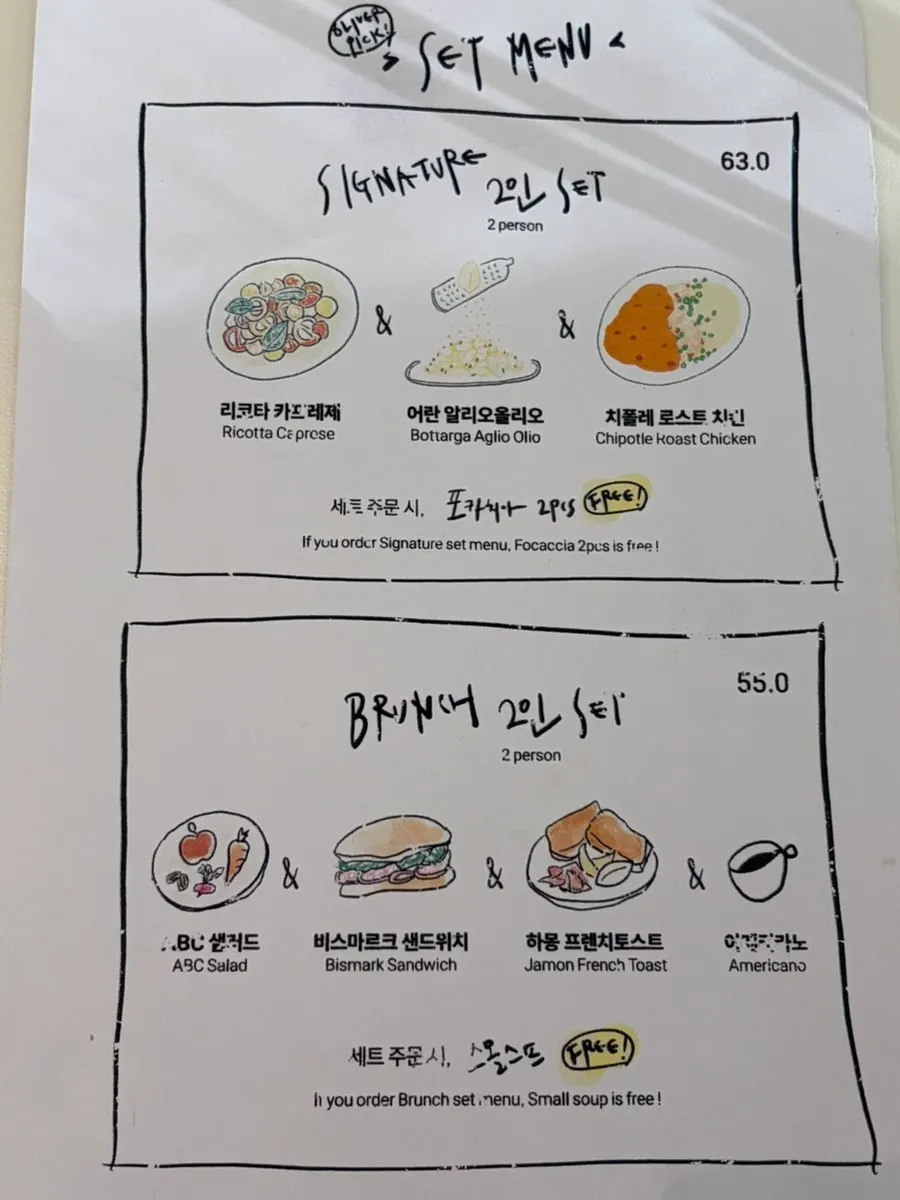 OLIVER
PICK!
SET MENU
63.0
SIGNATURE 2인 SET
2 person
& &
리코타 카프레제 어란 알리오올리오 치폴레 로스트 치킨
Ricotta Caprese Bottarga Aglio Olio Chipotle Roast Chicken
세트 주문 시, 포카치아 2pcs FREE!
If you order Signature set menu, Focaccia 2pcs is free!
55.0
BRUNCH 2인 SET
2 person
& & &
ABC 샐러드 비스마르크 샌드위치 하몽 프렌치토스트 아메리카노
ABC Salad Bismark Sandwich Jamon French Toast Americano
세트 주문 시, 스몰스프 FREE!
If you order Brunch set menu, Small soup is free!